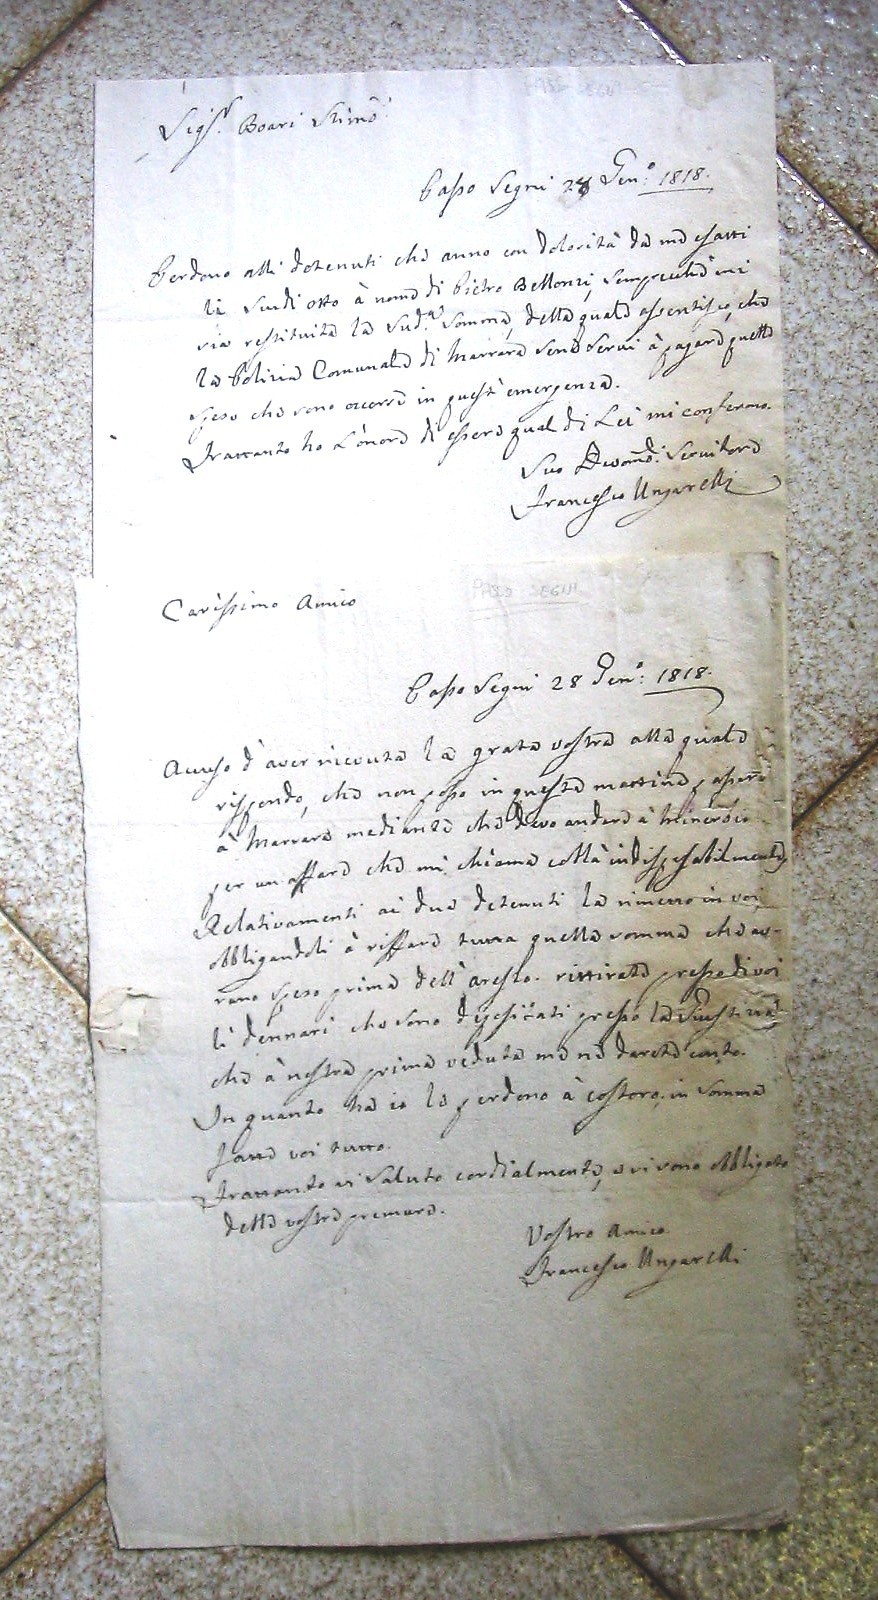 PASSO SEGNI
Sig.r Boari Stimo
Passo Segni 28 Gen.o: 1818.
Perdono alli detenuti che anno con dolorità da me esatti
li Scudi otto à nome di Pietro Bellonzi, sempreché mi
sia restituita la Sud.a Somma, della quale assentisco, che
la Polizia Comunale di Marrara sene servi à pagare quelle
spese che sono occorse in quest'emergenza.
Frattanto ho l'onore di essere qual di Lei mi confermo.
Suo Devomo: Servitore
Francesco Ungarelli
PASSO SEGNI
Carissimo Amico
Passo Segni 28 Gen.o: 1818.
Accuso d'aver ricevuta la grata vostra alla quale
rispondo, che non posso in questa mattina passare
à Marrara mediante che devo andare à Minerbio
per un affare che mi chiama collà indispesabilmente
Relativamenti ai due detenuti la rimetto in voi
obbligandoli à riffare tutta quella somma che av-
rano speso prima dell'aresto. rittirate presso di voi
li dennari che sono depositati presso la Giustizia
che à nostra prima veduta me ne darete conto.
In quanto ha io le perdono à costoro; in somma
fatte voi tutto.
Frattanto vi saluto cordialmente, e vi sono obbligato
della vostra premura.
Vostro Amico
Francesco Ungarelli